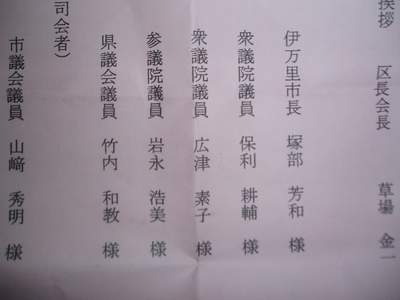 挨拶 区長会長 草場 金一
伊万里市長 塚部 芳和 様
衆議院議員 保利 耕輔 様
衆議院議員 広津 素子 様
参議院議員 岩永 浩美 様
県議会議員 竹内 和教 様
司会者）
市議会議員 山﨑 秀明 様